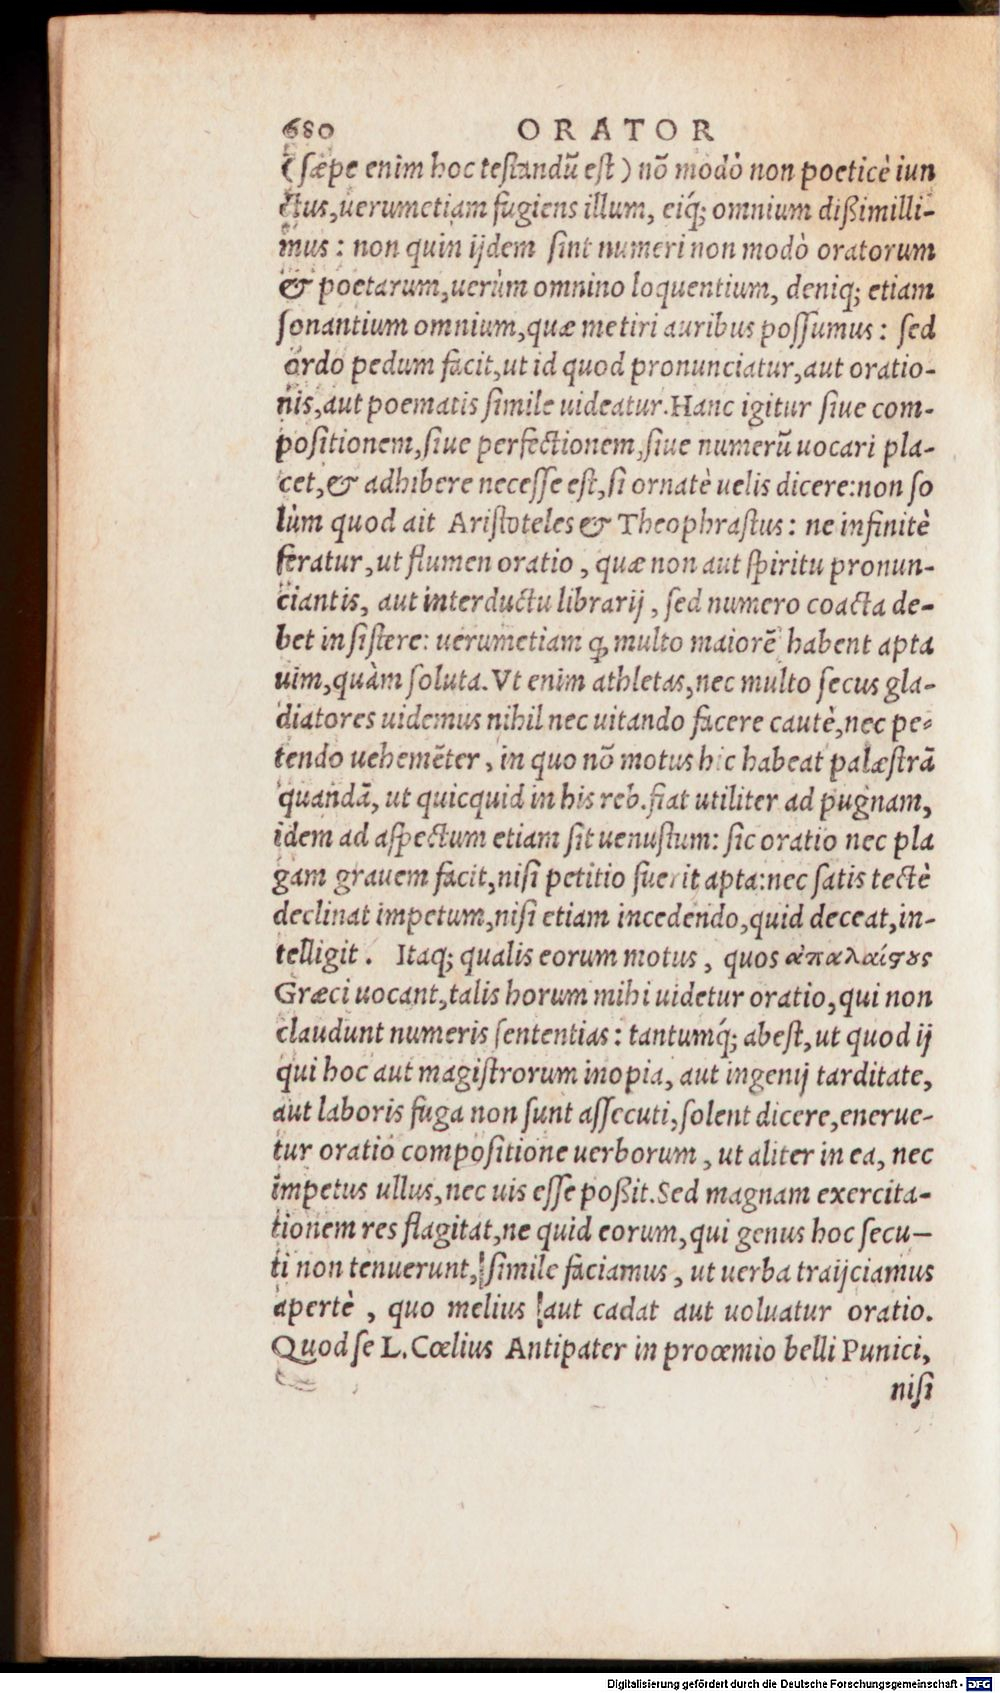 680 ORATOR
(sæpe enim hoc testandũ est) nõ modò non poeticè iun
ctus, uerumetiam fugiens illum, eiq́; omnium dißimilli-
mus: non quin ijdem sint numeri non modò oratorum
& poetarum, uerùm omnino loquentium, deniq; etiam
sonantium omnium, quæ metiri auribus possumus: sed
ordo pedum facit, ut id quod pronunciatur, aut oratio-
nis, aut poematis simile uideatur. Hanc igitur siue com-
positionem, siue perfectionem, siue numerũ uocari pla-
cet, & adhibere necesse est, si ornatè uelis dicere: non so
lùm quod ait Aristoteles & Theophrastus: ne infinitè
feratur, ut flumen oratio, quæ non aut spiritu pronun-
ciantis, aut interductu librarij, sed numero coacta de-
bet insistere: uerumetiam ꝙ multo maiorẽ habent apta
uim, quàm soluta. Vt enim athletas, nec multo secus gla-
diatores uidemus nihil nec uitando facere cautè, nec pe-
tendo uehemẽter, in quo nõ motus hic habeat palæstrã
quandã, ut quicquid in his reb. fiat utiliter ad pugnam,
idem ad aspectum etiam sit uenustum: sic oratio nec pla
gam grauem facit, nisi petitio fuerit apta: nec satis tectè
declinat impetum, nisi etiam incedendo, quid deceat, in-
telligit. Itaq; qualis eorum motus, quos ἀπαλαίςȣς
Græci uocant, talis horum mihi uidetur oratio, qui non
claudunt numeris sententias: tantumq́; abest, ut quod ij
qui hoc aut magistrorum inopia, aut ingenij tarditate,
aut laboris fuga non sunt assecuti, solent dicere, enerue-
tur oratio compositione uerborum, ut aliter in ea, nec
impetus ullus, nec uis esse poßit. Sed magnam exercita-
tionem res flagitat, ne quid eorum, qui genus hoc secu-
ti non tenuerunt, simile faciamus, ut uerba traijciamus
apertè, quo melius aut cadat aut uoluatur oratio.
Quod se L. Cœlius Antipater in proœmio belli Punici,
nisi
Digitalisierung gefördert durch die Deutsche Forschungsgemeinschaft - DFG